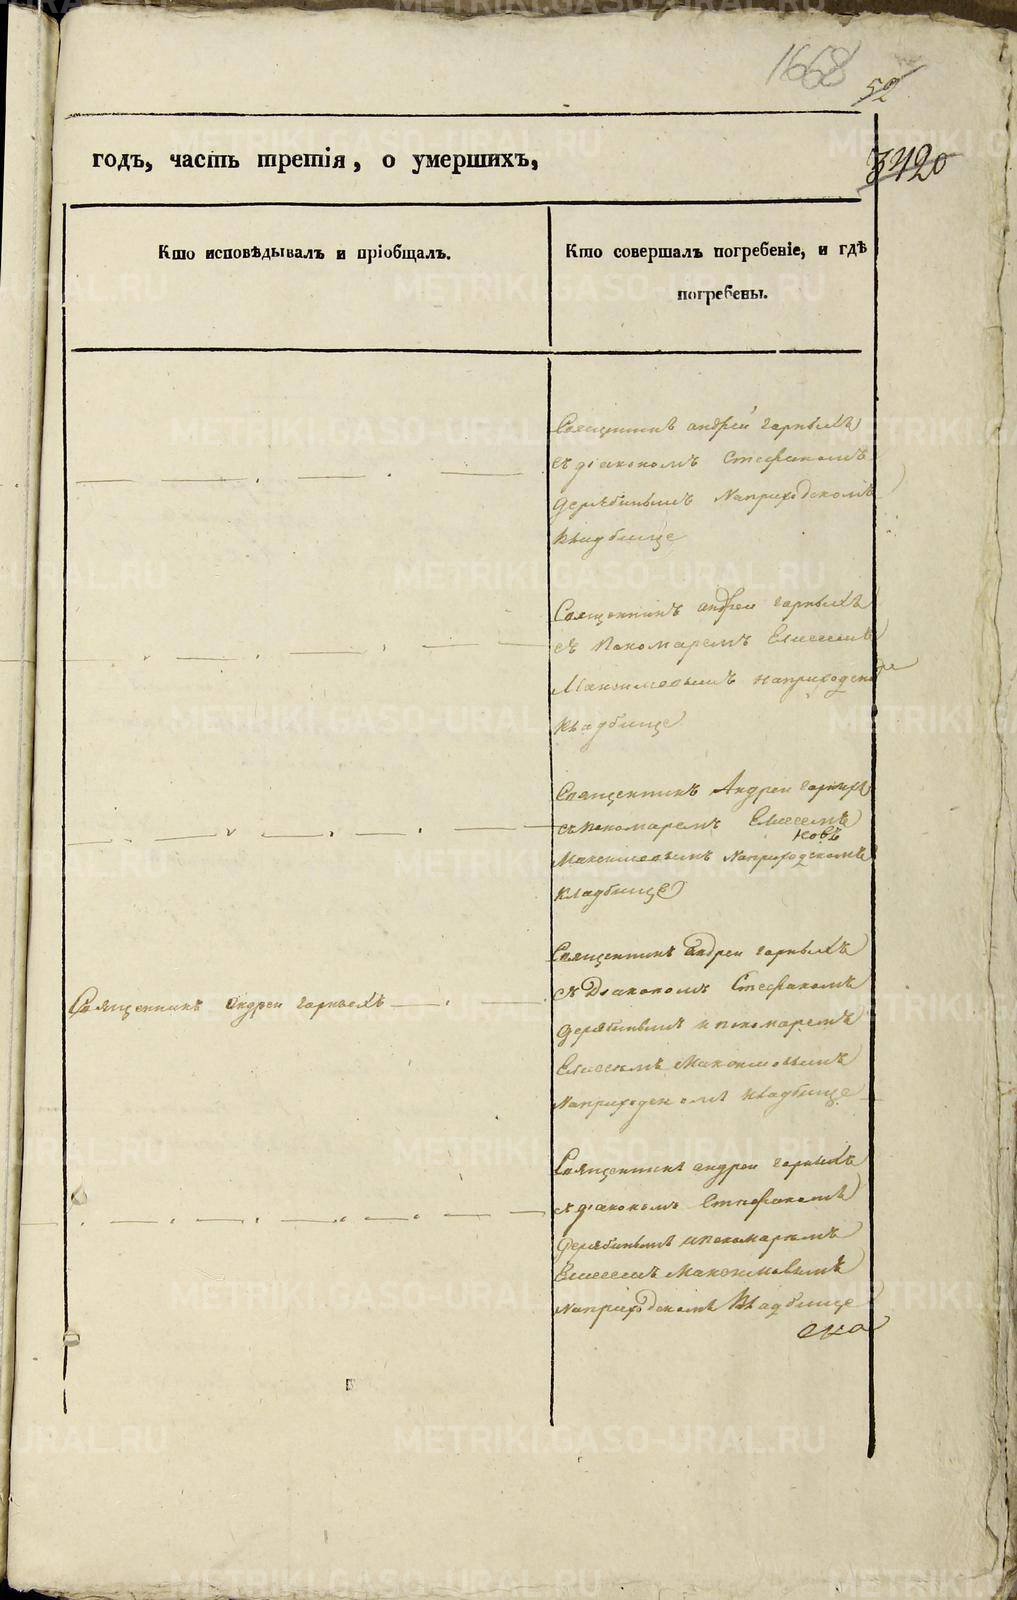 1668
52
3420
годъ, часть третія, о умершихъ,
Кто исповѣдывалъ и пріобщалъ.
Кто совершалъ погребеніе, и гдѣ
погребены.
Священникъ андрей Горныхъ
съ діакономъ Стефаномъ
Дерябинымъ Наприходскомъ
кладбище
Священникъ андреи горныхъ
съ Пономаремъ Елисеемъ
Максимовымъ наприходско
кладбище
Священникъ Андреи горныхъ
съ пономаремъ Елисеемъ
Максимовымъ наприходскомъ
кладбище
Священникъ андреи горныхъ
Священникъ андреи горныхъ
съ Діакономъ Стефаномъ
Дерябинымъ и пономаремъ
Елисеемъ Максимовымъ
наприходскомъ кладбище
Священникъ андреи горныхъ
съ діакономъ Стефаномъ
Дерябинымъ ипономаремъ
Елисеемъ Максимовымъ
наприходскомъ кладбище
METRIKI.GASO-URAL.RU